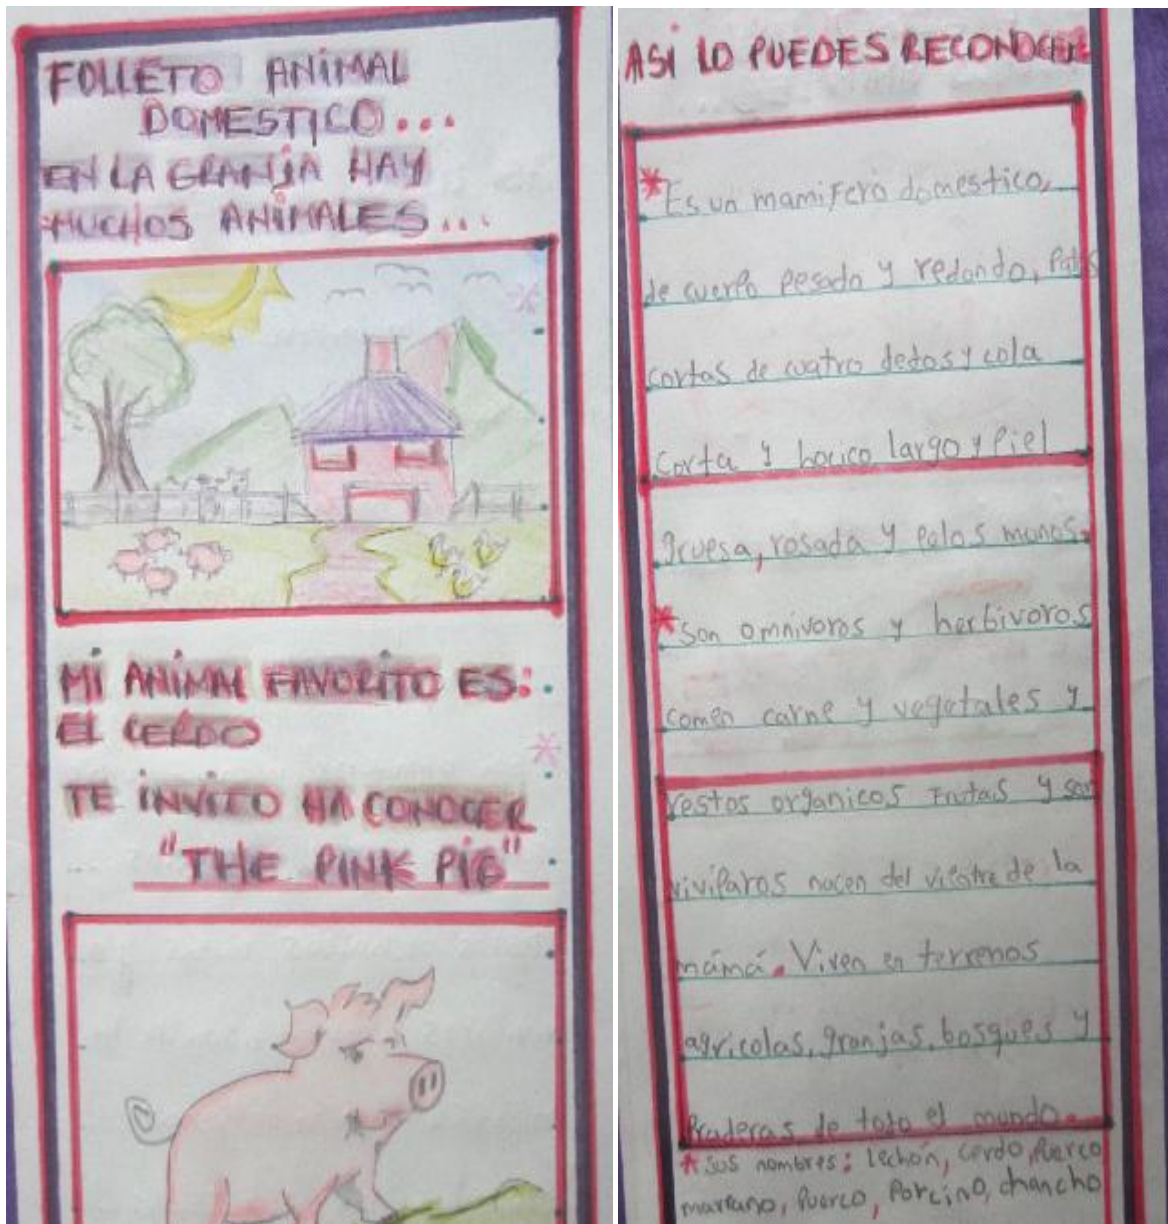 FOLLETO ANIMAL
DOMESTICO...
EN LA GRANJA HAY
MUCHOS ANIMALES...
MI ANIMAL FAVORITO ES:
EL CERDO
TE INVITO HA CONOCER
"THE PINK PIG"
ASI LO PUEDES RECONOCER
*Es un mamifero domestico,
de cuerpo pesado y redondo, Patas
cortas de cuatro dedos y cola
corta y hocico largo y Piel
gruesa, rosada y Pelos monos.
*Son omnivoros y herbivoros
comen carne y vegetales y
restos organicos Frutas y son
viviparos nacen del vientre de la
mámá. Viven en terrenos
agricolas, granjas, bosques y
Praderas de todo el mundo.
*Sus nombres: Lechón, cerdo, Puerco
marrano, Puerco, Porcino, chancho